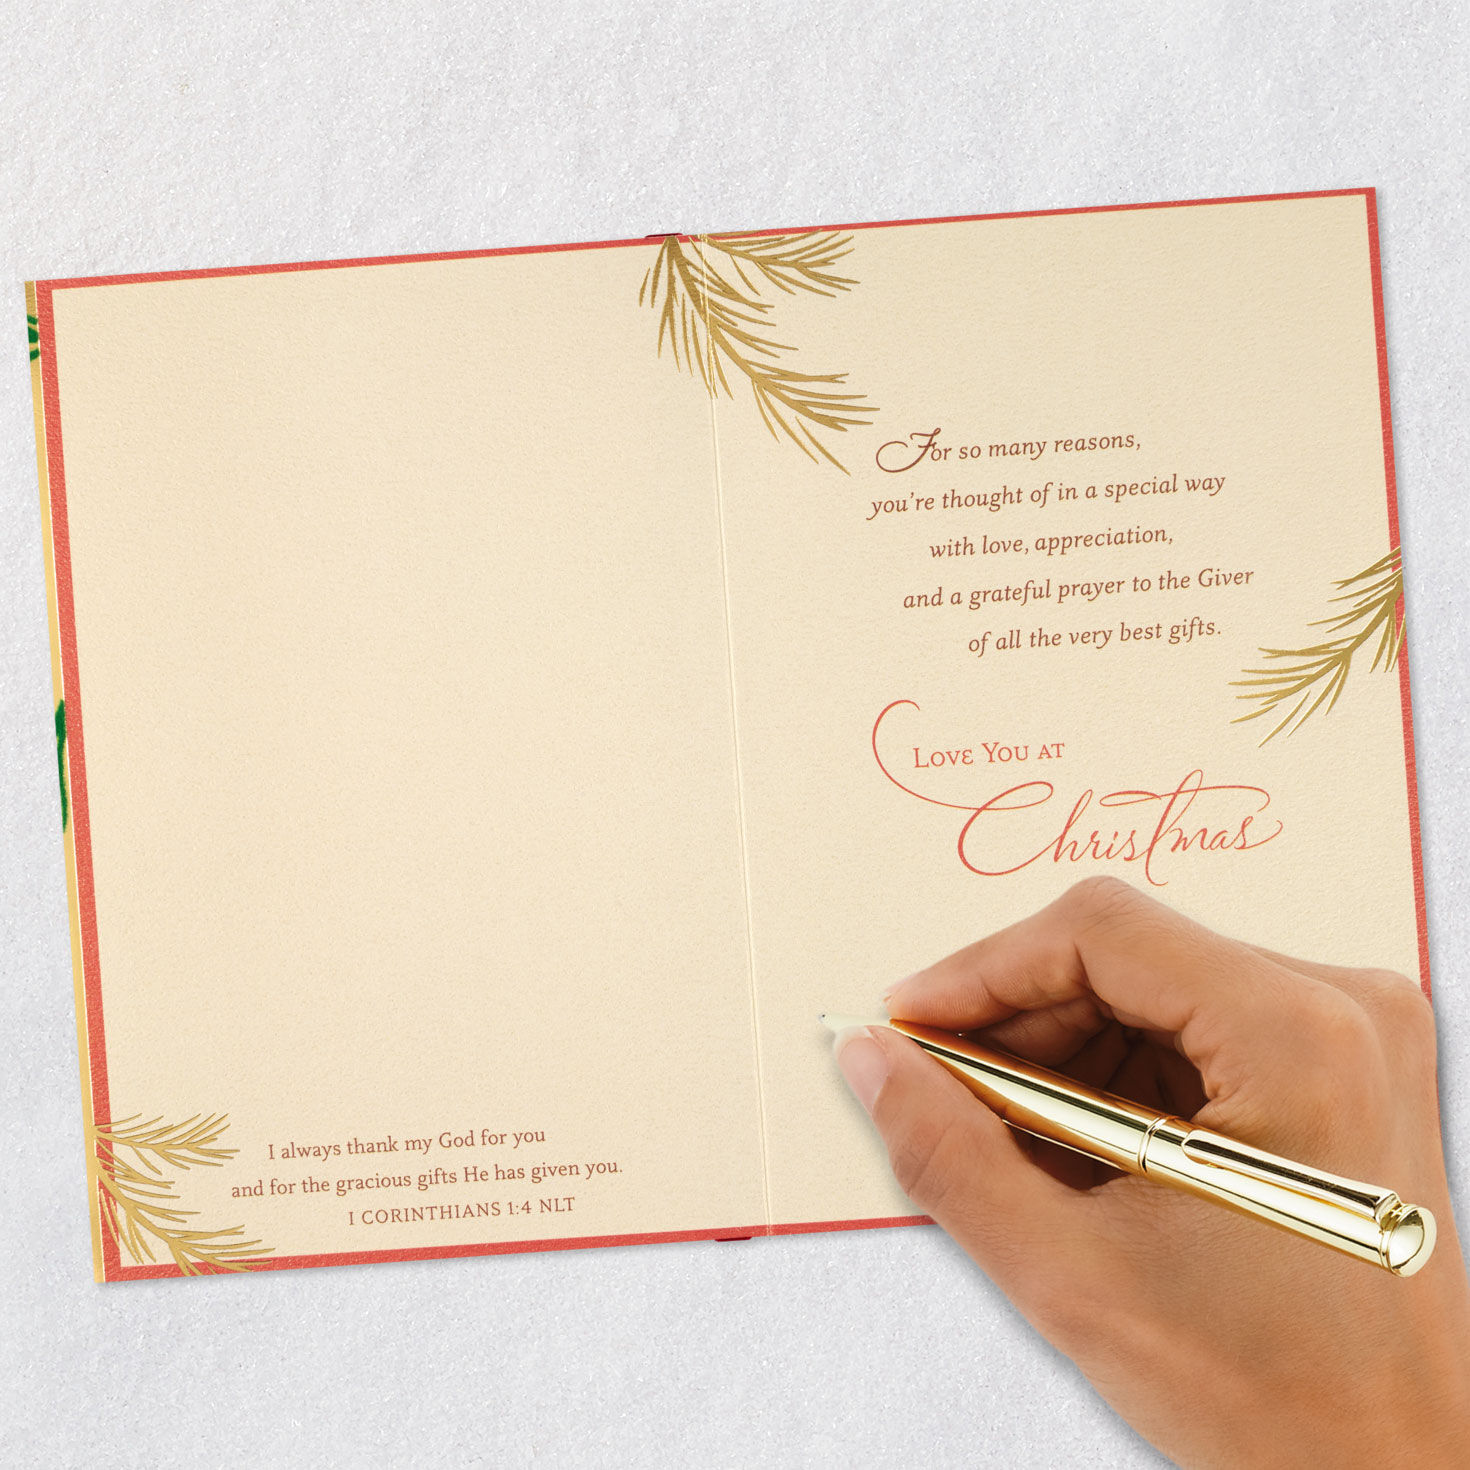 I always thank my God for you
and for the gracious gifts He has given you.
I CORINTHIANS 1:4 NLT
For so many reasons,
you're thought of in a special way
with love, appreciation,
and a grateful prayer to the Giver
of all the very best gifts.
LOVE YOU AT
Christmas